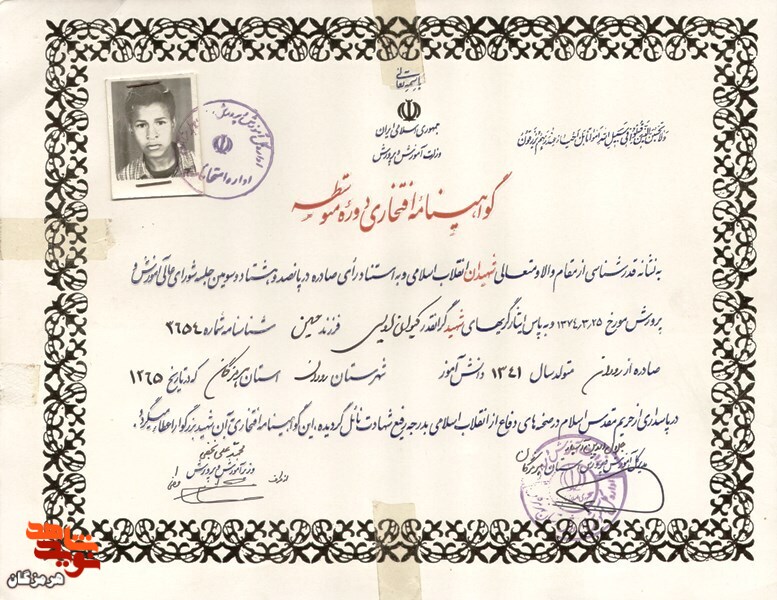 باسمه تعالی
جمهوری اسلامی ایران
وزارت آموزش و پرورش
ولا تحسبن الذین قتلوا فی سبیل الله امواتا بل احیاء عند ربهم یرزقون
اداره امتحانات
گواهینامه افتخاری دوره متوسطه
به نشانه قدرشناسی از مقام والا و متعالی شهیدان انقلاب اسلامی و به استناد رأی صادره در پانصد و هشتاد و سومین جلسه شورای عالی آموزش و
پرورش مورخ ۱۳۷۴٫۳٫۲۵ و به پاس ایثارگریهای شهید گرانقدر فرزند حسین شناسنامه شماره ۳۶۵۴
صادره از رودان متولد سال ۱۳۴۱ دانش آموز شهرستان رودان استان هرمزگان که در تاریخ ۱۳۶۵
در پاسداری از حریم مقدس اسلام در صحنه های دفاع از انقلاب اسلامی بدرجه رفیع شهادت نائل گردیده، این گواهینامه افتخاری آن شهید بزرگوار اعطاء میگردد.
محمد علی نجفی
وزیر آموزش و پرورش
از طرف
مدیر کل آموزش و پرورش استان هرمزگان
نوید شاهد
هرمزگان